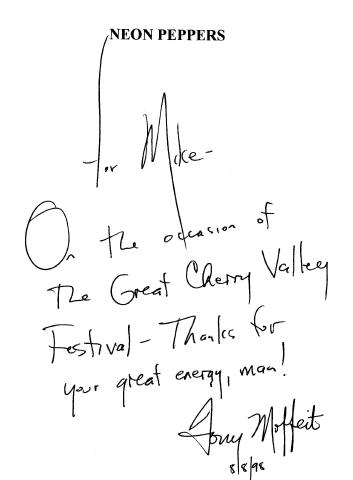 NEON PEPPERS
for Mike-
On the occasion of
The Great Cherry Valley
Festival - Thanks for
your great energy, man!
Tony Moffeit
8/8/98